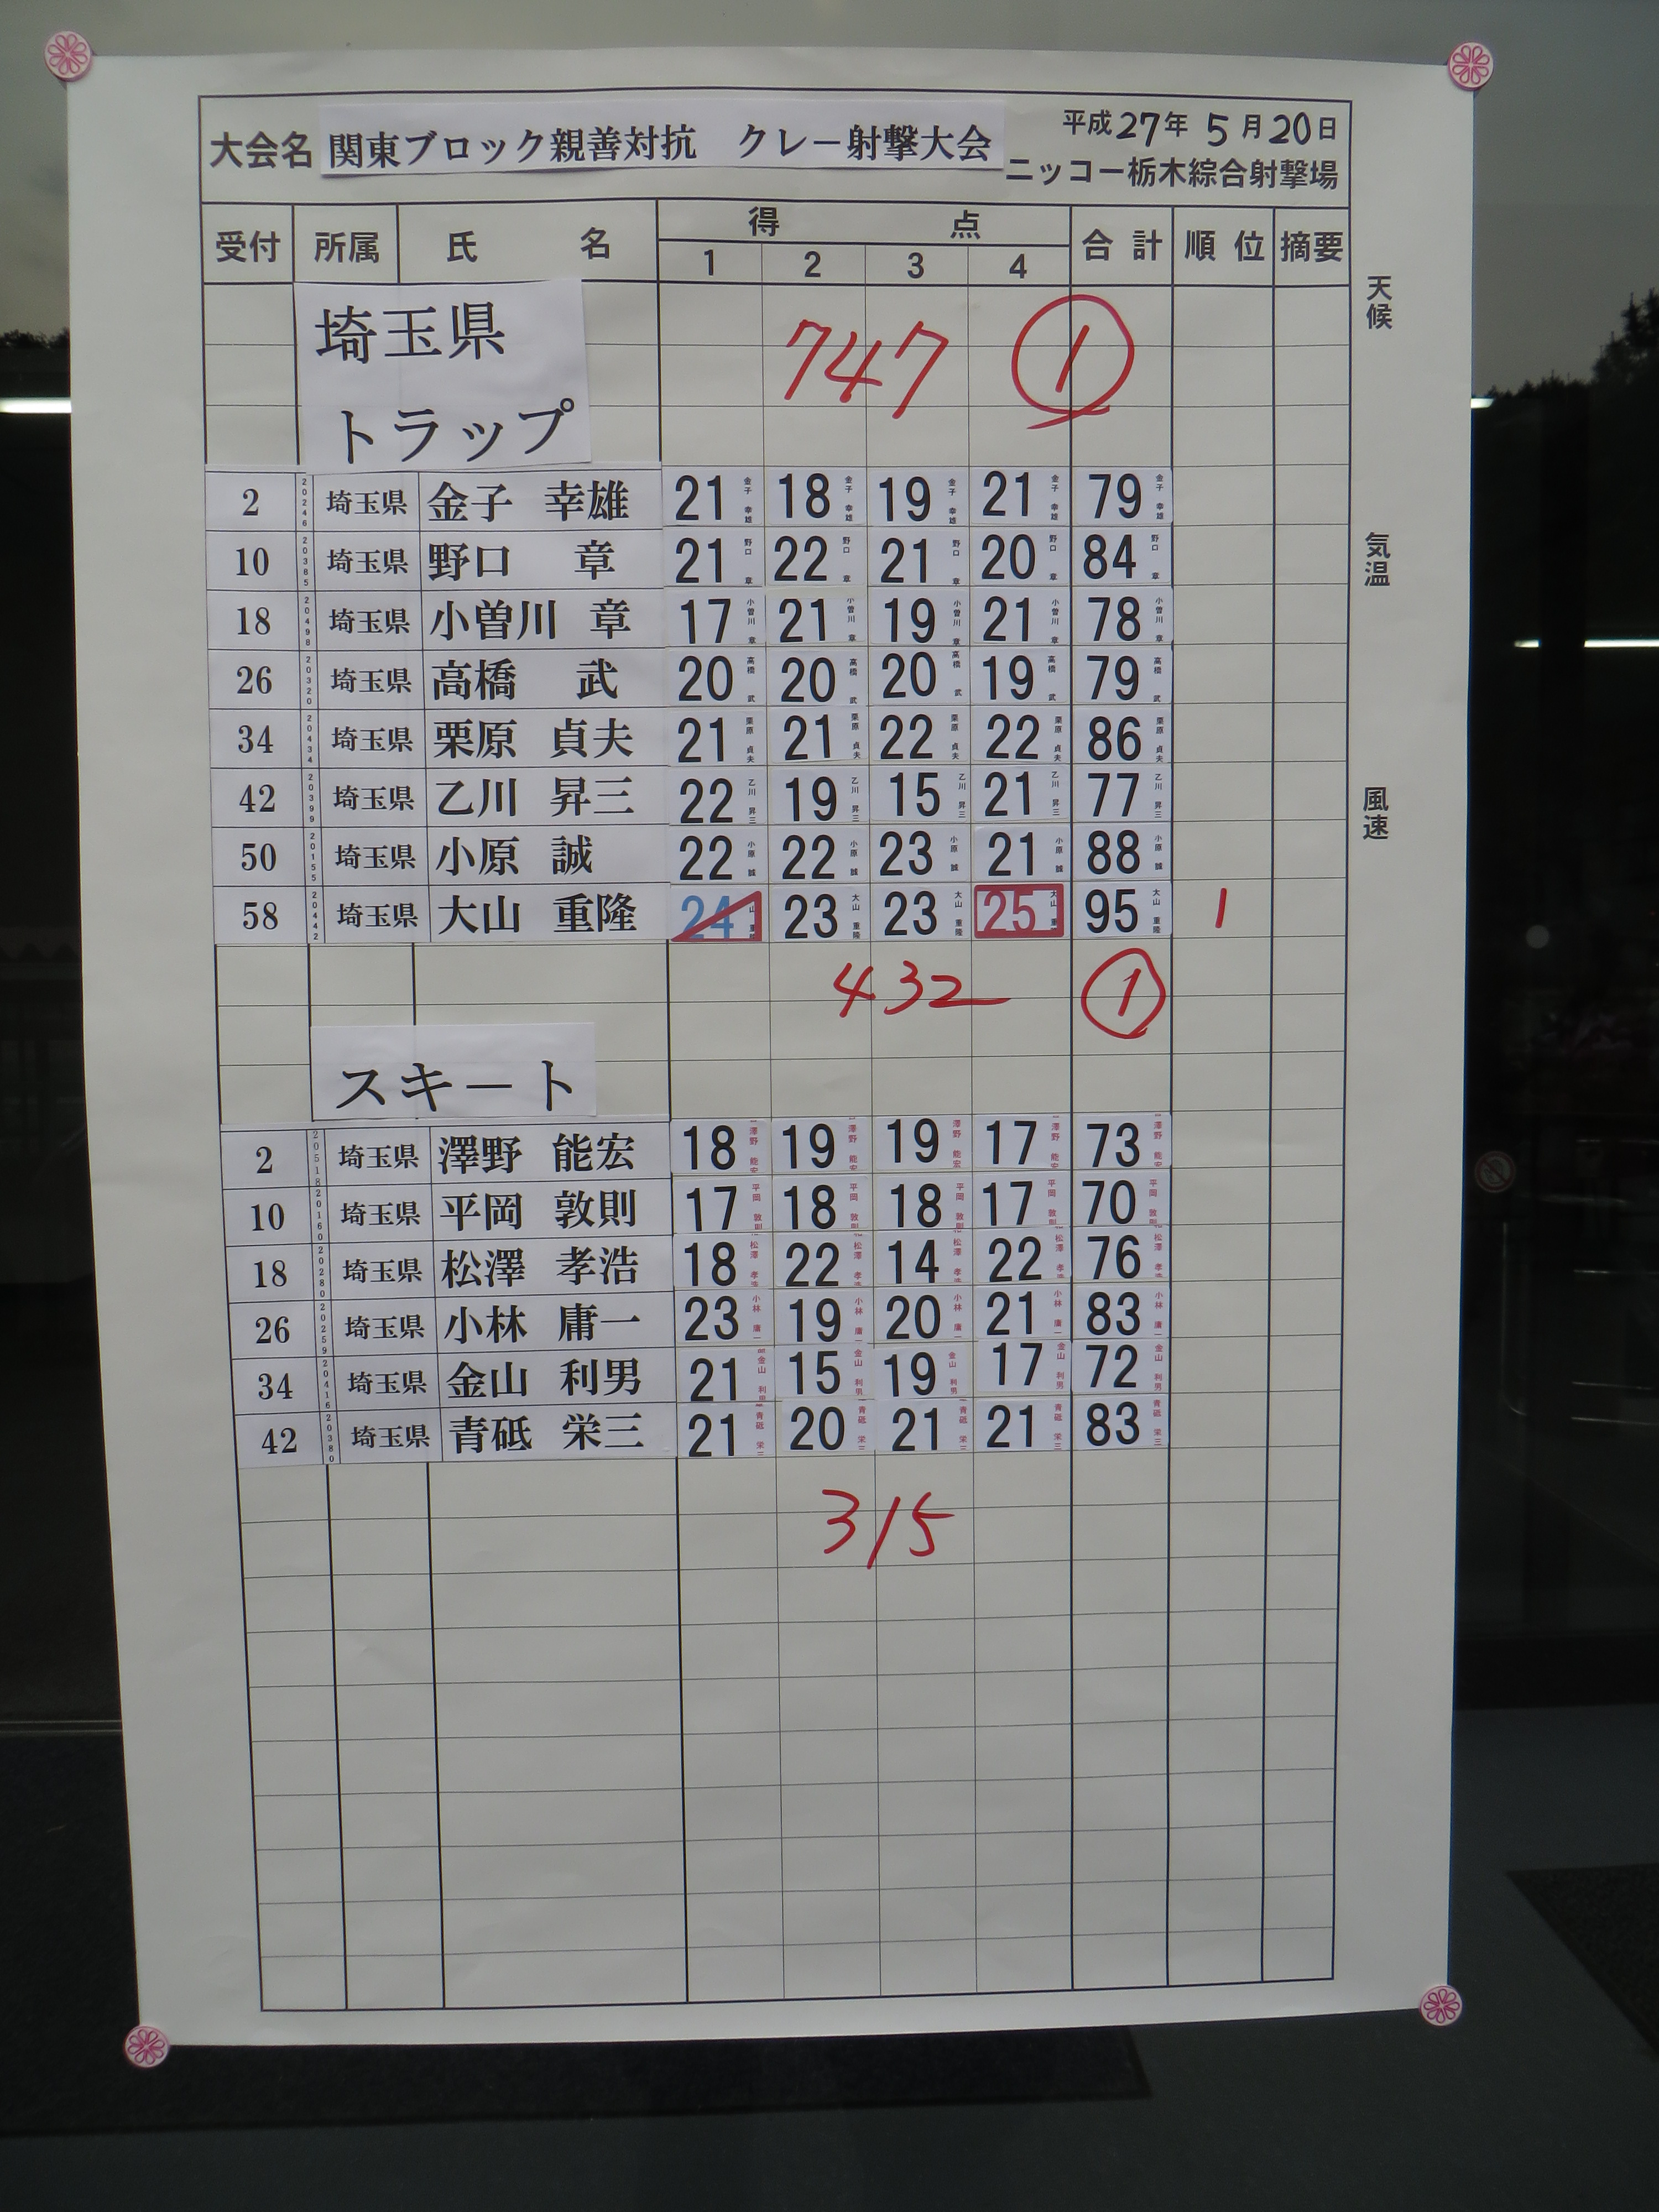 大会名 関東ブロック親善対抗 クレー射撃大会 平成27年 5月20日
ニッコー栃木綜合射撃場
受付 所属 氏名 得点 合計 順位 摘要
1 2 3 4
天候
気温
風速
埼玉県 747 ①
トラップ
2 20246 埼玉県 金子 幸雄 21 18 19 21 79
10 20385 埼玉県 野口 章 21 22 21 20 84
18 20498 埼玉県 小曽川 章 17 21 19 21 78
26 20320 埼玉県 高橋 武 20 20 20 19 79
34 20434 埼玉県 栗原 貞夫 21 21 22 22 86
42 20399 埼玉県 乙川 昇三 22 19 15 21 77
50 20155 埼玉県 小原 誠 22 22 23 21 88
58 20442 埼玉県 大山 重隆 24 23 23 25 95 1
432 ①
スキート
2 20518 埼玉県 澤野 能宏 18 19 19 17 73
10 20160 埼玉県 平岡 敦則 17 18 18 17 70
18 20280 埼玉県 松澤 孝浩 18 22 14 22 76
26 20259 埼玉県 小林 庸一 23 19 20 21 83
34 20416 埼玉県 金山 利男 21 15 19 17 72
42 20380 埼玉県 青砥 栄三 21 20 21 21 83
315